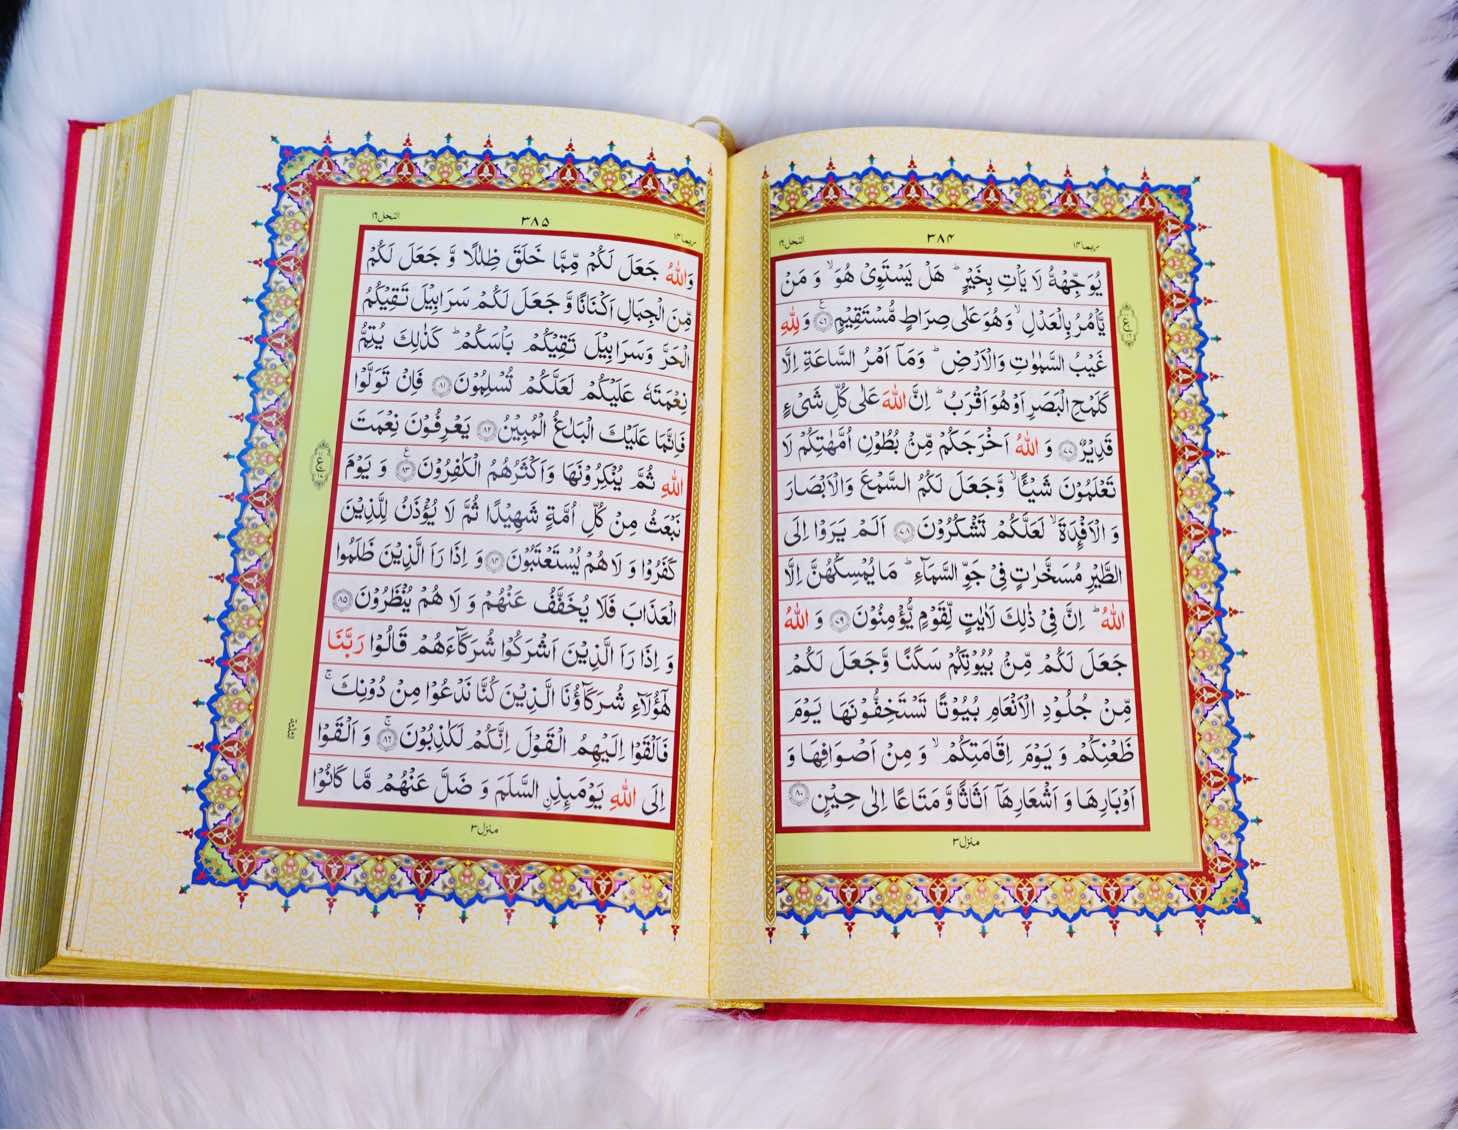 ربما ١٤
٣٨۴
النحل ١٦
يُوَجِّهْهُّ لَا يَاْتِ بِخَيْرٍ ؕ هَلْ يَسْتَوِىْ هُوَ ۙ وَ مَنْ
يَّاْمُرُ بِالْعَدْلِ ۙ وَهُوَ عَلٰى صِرَاطٍ مُّسْتَقِيْمٍ ﴿۷۶﴾ وَلِلّٰهِ
غَيْبُ السَّمٰوٰتِ وَالْاَرْضِ ؕ وَمَاۤ اَمْرُ السَّاعَةِ اِلَّا
كَلَمْحِ الْبَصَرِ اَوْ هُوَ اَقْرَبُ ؕ اِنَّ اللّٰهَ عَلٰى كُلِّ شَىْءٍ
قَدِيْرٌ ﴿۷۷﴾ وَ اللّٰهُ اَخْرَجَكُمْ مِّنْۢ بُطُوْنِ اُمَّهٰتِكُمْ لَا
تَعْلَمُوْنَ شَيْـًٔا ۙ وَّجَعَلَ لَكُمُ السَّمْعَ وَالْاَبْصَارَ
وَ الْاَفْـِٕدَةَ ۙ لَعَلَّكُمْ تَشْكُرُوْنَ ﴿۷۸﴾ اَلَمْ يَرَوْا اِلَى
الطَّيْرِ مُسَخَّرٰتٍ فِىْ جَوِّ السَّمَآءِ ؕ مَا يُمْسِكُهُنَّ اِلَّا
اللّٰهُ ؕ اِنَّ فِىْ ذٰلِكَ لَاٰيٰتٍ لِّقَوْمٍ يُّؤْمِنُوْنَ ﴿۷۹﴾ وَ اللّٰهُ
جَعَلَ لَكُمْ مِّنْۢ بُيُوْتِكُمْ سَكَنًا وَّجَعَلَ لَكُمْ
مِّنْ جُلُوْدِ الْاَنْعَامِ بُيُوْتًا تَسْتَخِفُّوْنَهَا يَوْمَ
ظَعْنِكُمْ وَ يَوْمَ اِقَامَتِكُمْ ۙ وَ مِنْ اَصْوَافِهَا وَ
اَوْبَارِهَا وَ اَشْعَارِهَاۤ اَثَاثًا وَّ مَتَاعًا اِلٰى حِيْنٍ ﴿۸۰﴾
منزل ٣
ربما ١٤
٣٨۵
النحل ١٦
وَاللّٰهُ جَعَلَ لَكُمْ مِّمَّا خَلَقَ ظِلٰلًا وَّ جَعَلَ لَكُمْ
مِّنَ الْجِبَالِ اَكْنَانًا وَّ جَعَلَ لَكُمْ سَرَابِيْلَ تَقِيْكُمُ
الْحَرَّ وَسَرَابِيْلَ تَقِيْكُمْ بَاْسَكُمْ ؕ كَذٰلِكَ يُتِمُّ
نِعْمَتَهٗ عَلَيْكُمْ لَعَلَّكُمْ تُسْلِمُوْنَ ﴿۸۱﴾ فَاِنْ تَوَلَّوْا
فَاِنَّمَا عَلَيْكَ الْبَلٰغُ الْمُبِيْنُ ﴿۸۲﴾ يَعْرِفُوْنَ نِعْمَتَ
اللّٰهِ ثُمَّ يُنْكِرُوْنَهَا وَاَكْثَرُهُمُ الْكٰفِرُوْنَ ﴿۸۳﴾ وَ يَوْمَ
نَبْعَثُ مِنْ كُلِّ اُمَّةٍ شَهِيْدًا ثُمَّ لَا يُؤْذَنُ لِلَّذِيْنَ
كَفَرُوْا وَ لَا هُمْ يُسْتَعْتَبُوْنَ ﴿۸۴﴾ وَ اِذَا رَاَ الَّذِيْنَ ظَلَمُوا
الْعَذَابَ فَلَا يُخَفَّفُ عَنْهُمْ وَ لَا هُمْ يُنْظَرُوْنَ ﴿۸۵﴾
وَ اِذَا رَاَ الَّذِيْنَ اَشْرَكُوْا شُرَكَآءَهُمْ قَالُوْا رَبَّنَا
هٰۤؤُلَآءِ شُرَكَآؤُنَا الَّذِيْنَ كُنَّا نَدْعُوْا مِنْ دُوْنِكَ ۚ
فَاَلْقَوْا اِلَيْهِمُ الْقَوْلَ اِنَّكُمْ لَكٰذِبُوْنَ ﴿۸۶﴾ وَ اَلْقَوْا
اِلَى اللّٰهِ يَوْمَئِذِ ۨالسَّلَمَ وَ ضَلَّ عَنْهُمْ مَّا كَانُوْا
الثلثة
منزل ٣